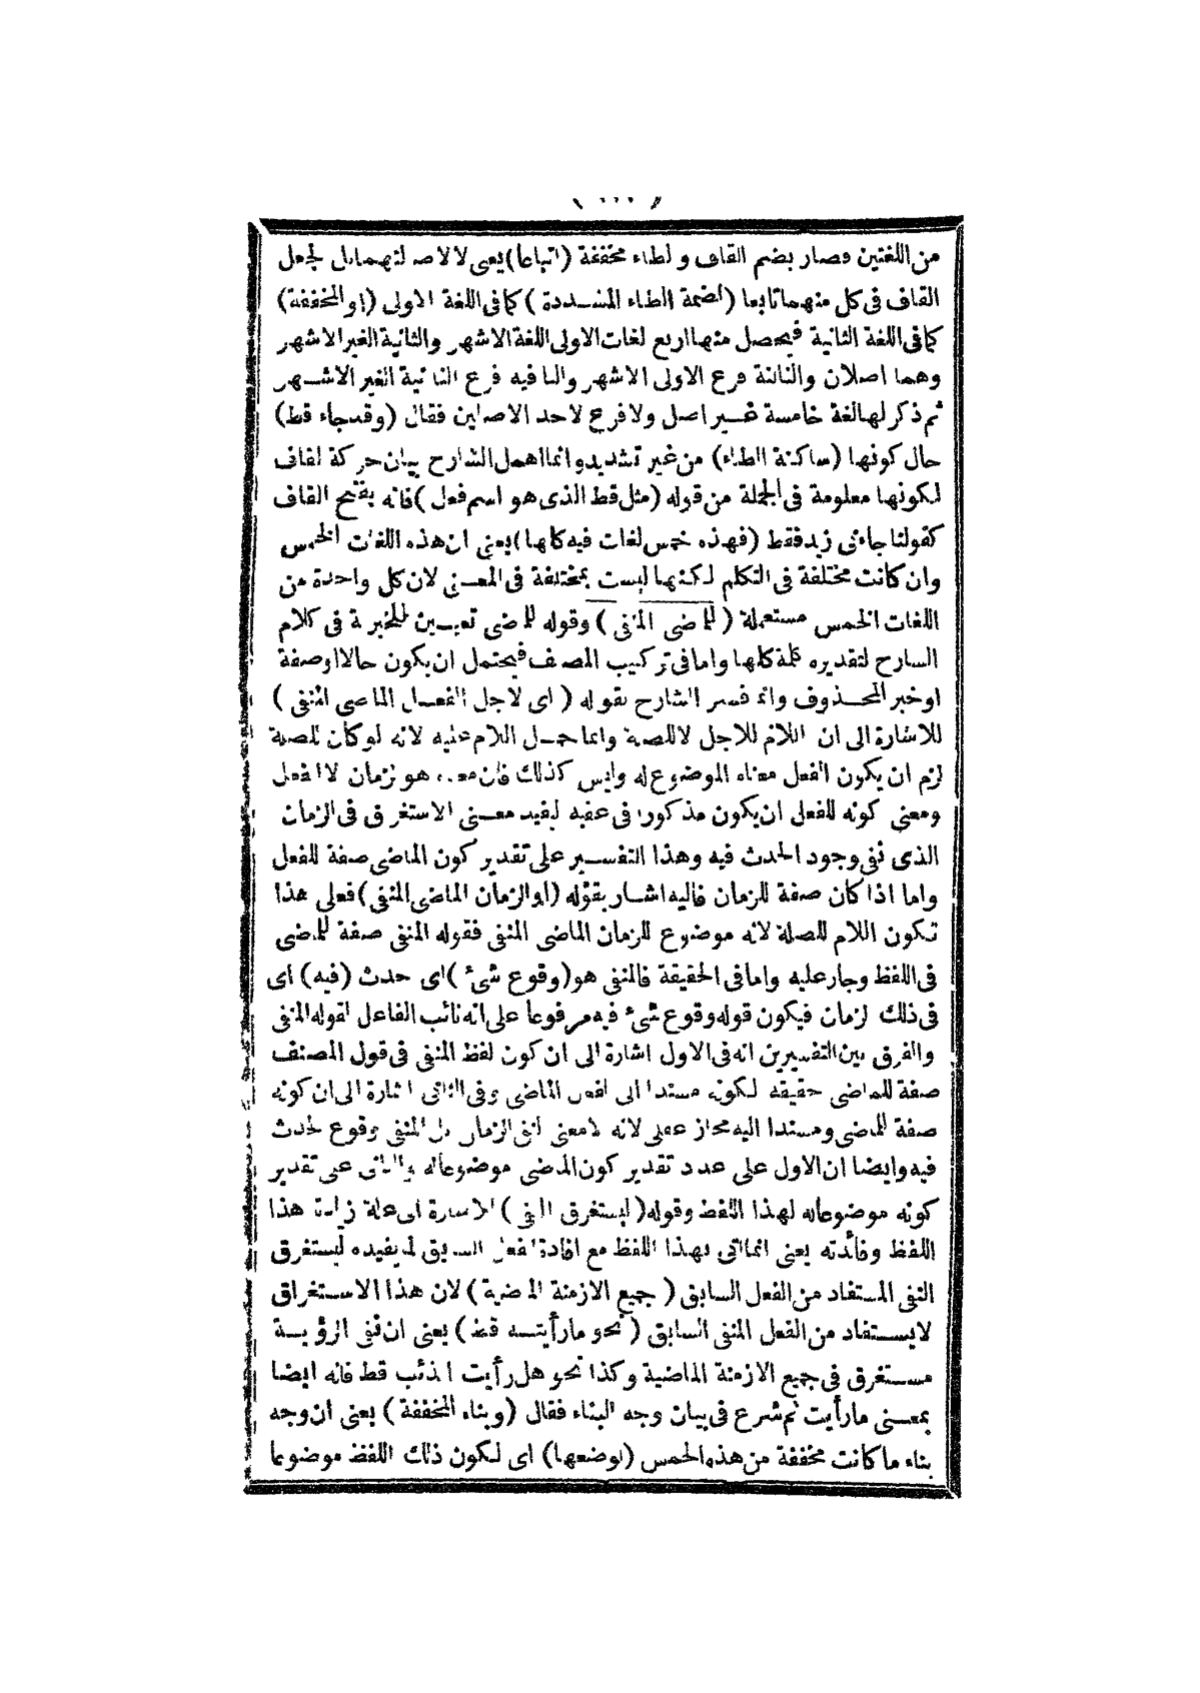 من اللغتين فصار بضم القاف و لطاء مخففة (اتباعا) يعنى لا لاصالتهما بل لجعل
القاف فى كل منهما تابعا (لضمة الطاء المشددة) كما فى اللغة الاولى (او المخففة)
كما فى اللغة الثانية فيحصل منها اربع لغات الاولى اللغة الاشهر والثانية الغير الاشهر
وهما اصلان والثالثة فرع الاولى الاشهر والباقيه فرع الثانية الغير الاشهر
ثم ذكر لها لغة خامسة غير اصل ولا فرع لاحد الاصلين فقال (وقد جاء قط)
حال كونها (ساكنة الطاء) من غير تشديد وانما اهمل الشارح بيان حركة لقاف
لكونها معلومة فى الجملة من قوله (مثل قط الذى هو اسم فعل) فانه بفتح القاف
كقولنا جاءنى زيد فقط (فهذه خمس لغات فيه كلها) يعنى ان هذه اللغات الخمس
وان كانت مختلفة فى التكلم لكنها ليست بمختلفة فى المعنى لان كل واحدة من
اللغات الخمس مستعملة (للماضى المنفى) وقوله للماضى تعيين للخبرية فى كلام
الشارح لتقديره كلمة كلها واما فى تركيب المصنف فيحتمل ان يكون حالا او صفة
او خبر المحذوف وانما فسر الشارح بقوله (اى لاجل الفعل الماضى المنفى)
للاشارة الى ان اللام للاجل لا للصلة وانما حمل اللام عليه لانه لو كان للصلة
لزم ان يكون الفعل معناه الموضوع له وليس كذلك فان معناه هو لزمان لا الفعل
ومعنى كونه للفعل ان يكون مذكورا فى عقبه ليفيد معنى الاستغرق فى الزمان
الذى نفى وجود الحدث فيه وهذا التفسير على تقدير كون الماضى صفة للفعل
واما اذا كان صفة للزمان فاليه اشار بقوله (او الزمان الماضى المنفى) فعلى هذا
تكون اللام للصلة لانه موضوع للزمان الماضى المنفى فقوله المنفى صفة للماضى
فى اللفظ وجار عليه واما فى الحقيقة فالمنفى هو (وقوع شئ) اى حدث (فيه) اى
فى ذلك لزمان فيكون قوله وقوع شئ فيه مرفوعا على انه نائب الفاعل لقوله المنفى
والفرق بين التفسيرين انه فى الاول اشارة الى ان كون لفظ المنفى فى قول المصنف
صفة للماضى حقيقه لكونه مسندا الى الفعل الماضى وفى الثانى اشارة الى ان كونه
صفة للماضى ومسندا اليه مجاز عقلى لانه لا معنى لنفى الزمان بل المنفى وقوع لحدث
فيه وايضا ان الاول على عدد تقدير كون الماضى موضوعا له والثانى على تقدير
كونه موضوعا له لهذا اللفظ وقوله (ليستغرق النفى) الاشارة الى علة زيادة هذا
اللفظ وفائدته يعنى انما اتى بهذا اللفظ مع افادة لفعل السابق لما يفيده ليستغرق
النفى المستفاد من الفعل السابق (جميع الازمنة الماضية) لان هذا الاستغراق
لا يستفاد من الفعل المنفى السابق (نحو ما رأيته قط) يعنى ان نفى الرؤية
مستغرق فى جميع الازمنة الماضية وكذا نحو هل رأيت الذئب قط فانه ايضا
بمعنى ما رأيت ثم شرع فى بيان وجه البناء فقال (وبناء المخففة) يعنى ان وجه
بناء ما كانت مخففة من هذه الخمس (لوضعها) اى لكون ذلك اللفظ موضوعا